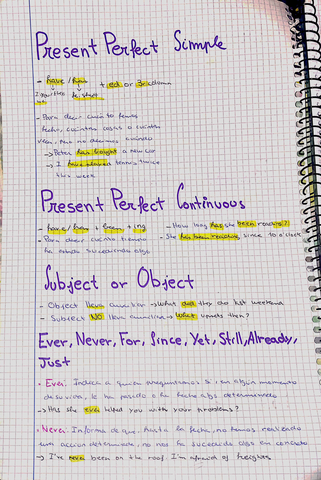 Present Perfect Simple
- have / has + ed or 3ª column
- Para decir cuánto hemos
hecho, cuántas cosas o cuántas
veces, pero no decimos cuándo
→ Peter has bought a new car
→ I have played tennis twice
this week
Present Perfect Continuous
- have / has + been + ing
- Para decir cuánto tiempo
ha estado sucediendo algo
- How long has she been reading?
- She has been reading since 10 o'clock
Subject or Object
- Object lleva auxiliar → What did they do last weekend
- Subject NO lleva auxiliar → What upsets them?
Ever, Never, For, Since, Yet, Still, Already,
Just
· Ever. Indica a quien preguntamos si, en algún momento
de su vida, le ha pasado o ha hecho algo determinado
→ Has she ever helped you with your problems?
· Never. Informa de que, hasta la fecha, no hemos realizado
una acción determinada, no nos ha sucedido algo en concreto
→ I've never been on the roof I'm afraid of heights